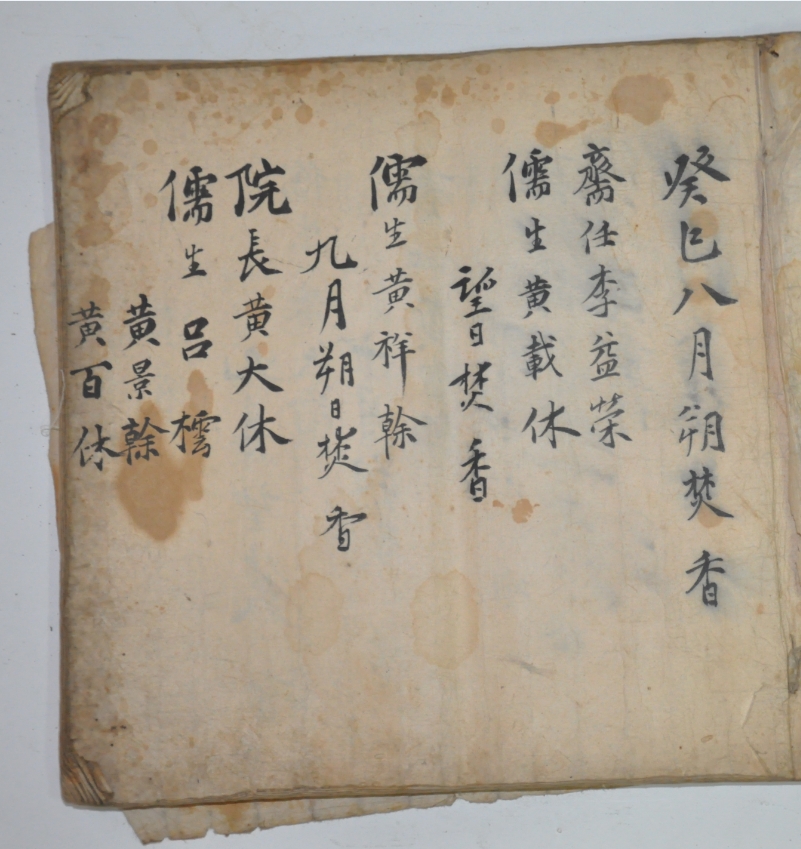 癸巳八月朔焚香
齋任李益榮
儒生黃載休
望日焚香
儒生黃祥榦
九月朔日焚香
院長黃大休
儒生呂樰
黃景榦
黃百休